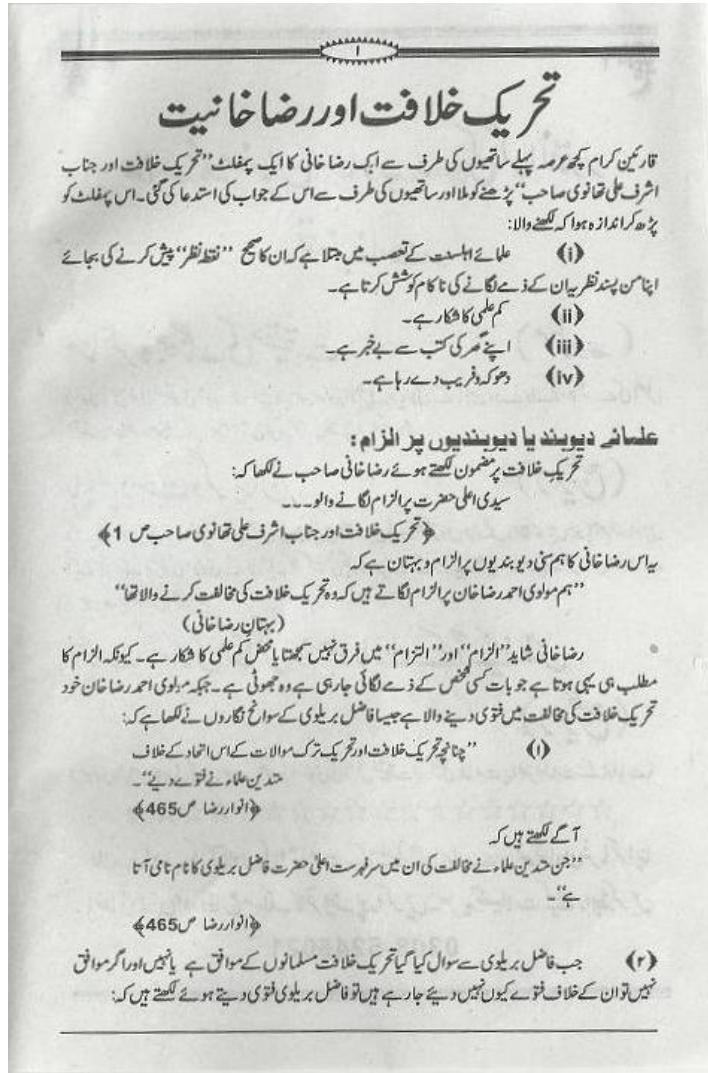 ۱
تحریک خلافت اور رضا خانیت
قارئین کرام کچھ عرصہ پہلے ساتھیوں کی طرف سے ایک رضا خانی کا ایک پمفلٹ ”تحریک خلافت اور جناب
اشرف علی تھانوی صاحب“ پڑھنے کو ملا اور ساتھیوں کی طرف سے اس کے جواب کی استدعا کی گئی۔ اس پمفلٹ کو
پڑھ کر اندازہ ہوا کہ لکھنے والا:
﴿i﴾ علمائے اہلسنت کے تعصب میں مبتلا ہے کہ ان کا صحیح ”نقطہ نظر“ پیش کرنے کی بجائے
اپنا من پسند نظریہ ان کے ذمے لگانے کی ناکام کوشش کرتا ہے۔
﴿ii﴾ کم علمی کا شکار ہے۔
﴿iii﴾ اپنے گھر کی کتب سے بے خبر ہے۔
﴿iv﴾ دھوکہ و فریب دے رہا ہے۔
علمائے دیوبند یا دیوبندیوں پر الزام:
تحریک خلافت پر مضمون لکھتے ہوئے رضا خانی صاحب نے لکھا کہ:
سیدی اعلی حضرت پر الزام لگانے والو۔۔۔
﴿تحریک خلافت اور جناب اشرف علی تھانوی صاحب ص 1﴾
یہ اس رضا خانی کا ہم سنی دیوبندیوں پر الزام و بہتان ہے کہ
”ہم مولوی احمد رضا خان پر الزام لگاتے ہیں کہ وہ تحریک خلافت کی مخالفت کرنے والا تھا“
(بہتان رضا خانی)
رضا خانی شاید ”الزام“ اور ”التزام“ میں فرق نہیں سمجھتا یا محض کم علمی کا شکار ہے۔ کیونکہ الزام کا
مطلب ہی یہی ہوتا ہے جو بات کسی شخص کے ذمے لگائی جا رہی ہے وہ جھوٹی ہے۔ جبکہ مولوی احمد رضا خان خود
تحریک خلافت کی مخالفت میں فتوی دینے والا ہے جیسا فاضل بریلوی کے سوانح نگاروں نے لکھا ہے کہ:
﴿۱﴾ ”چنانچہ تحریک خلافت اور تحریک ترک موالات کے اس اتحاد کے خلاف
متدین علماء نے فتوے دیے“۔
﴿انوار رضا ص 465﴾
آگے لکھتے ہیں کہ
”جن متدین علماء نے مخالفت کی ان میں سرفہرست اعلیٰ حضرت فاضل بریلوی کا نام نامی آتا
ہے“۔
﴿انوار رضا ص 465﴾
﴿۲﴾ جب فاضل بریلوی سے سوال کیا گیا تحریک خلافت مسلمانوں کے موافق ہے یا نہیں اور اگر موافق
نہیں تو ان کے خلاف فتوے کیوں نہیں دیئے جا رہے ہیں تو فاضل بریلوی فتوی دیتے ہوئے لکھتے ہیں کہ: